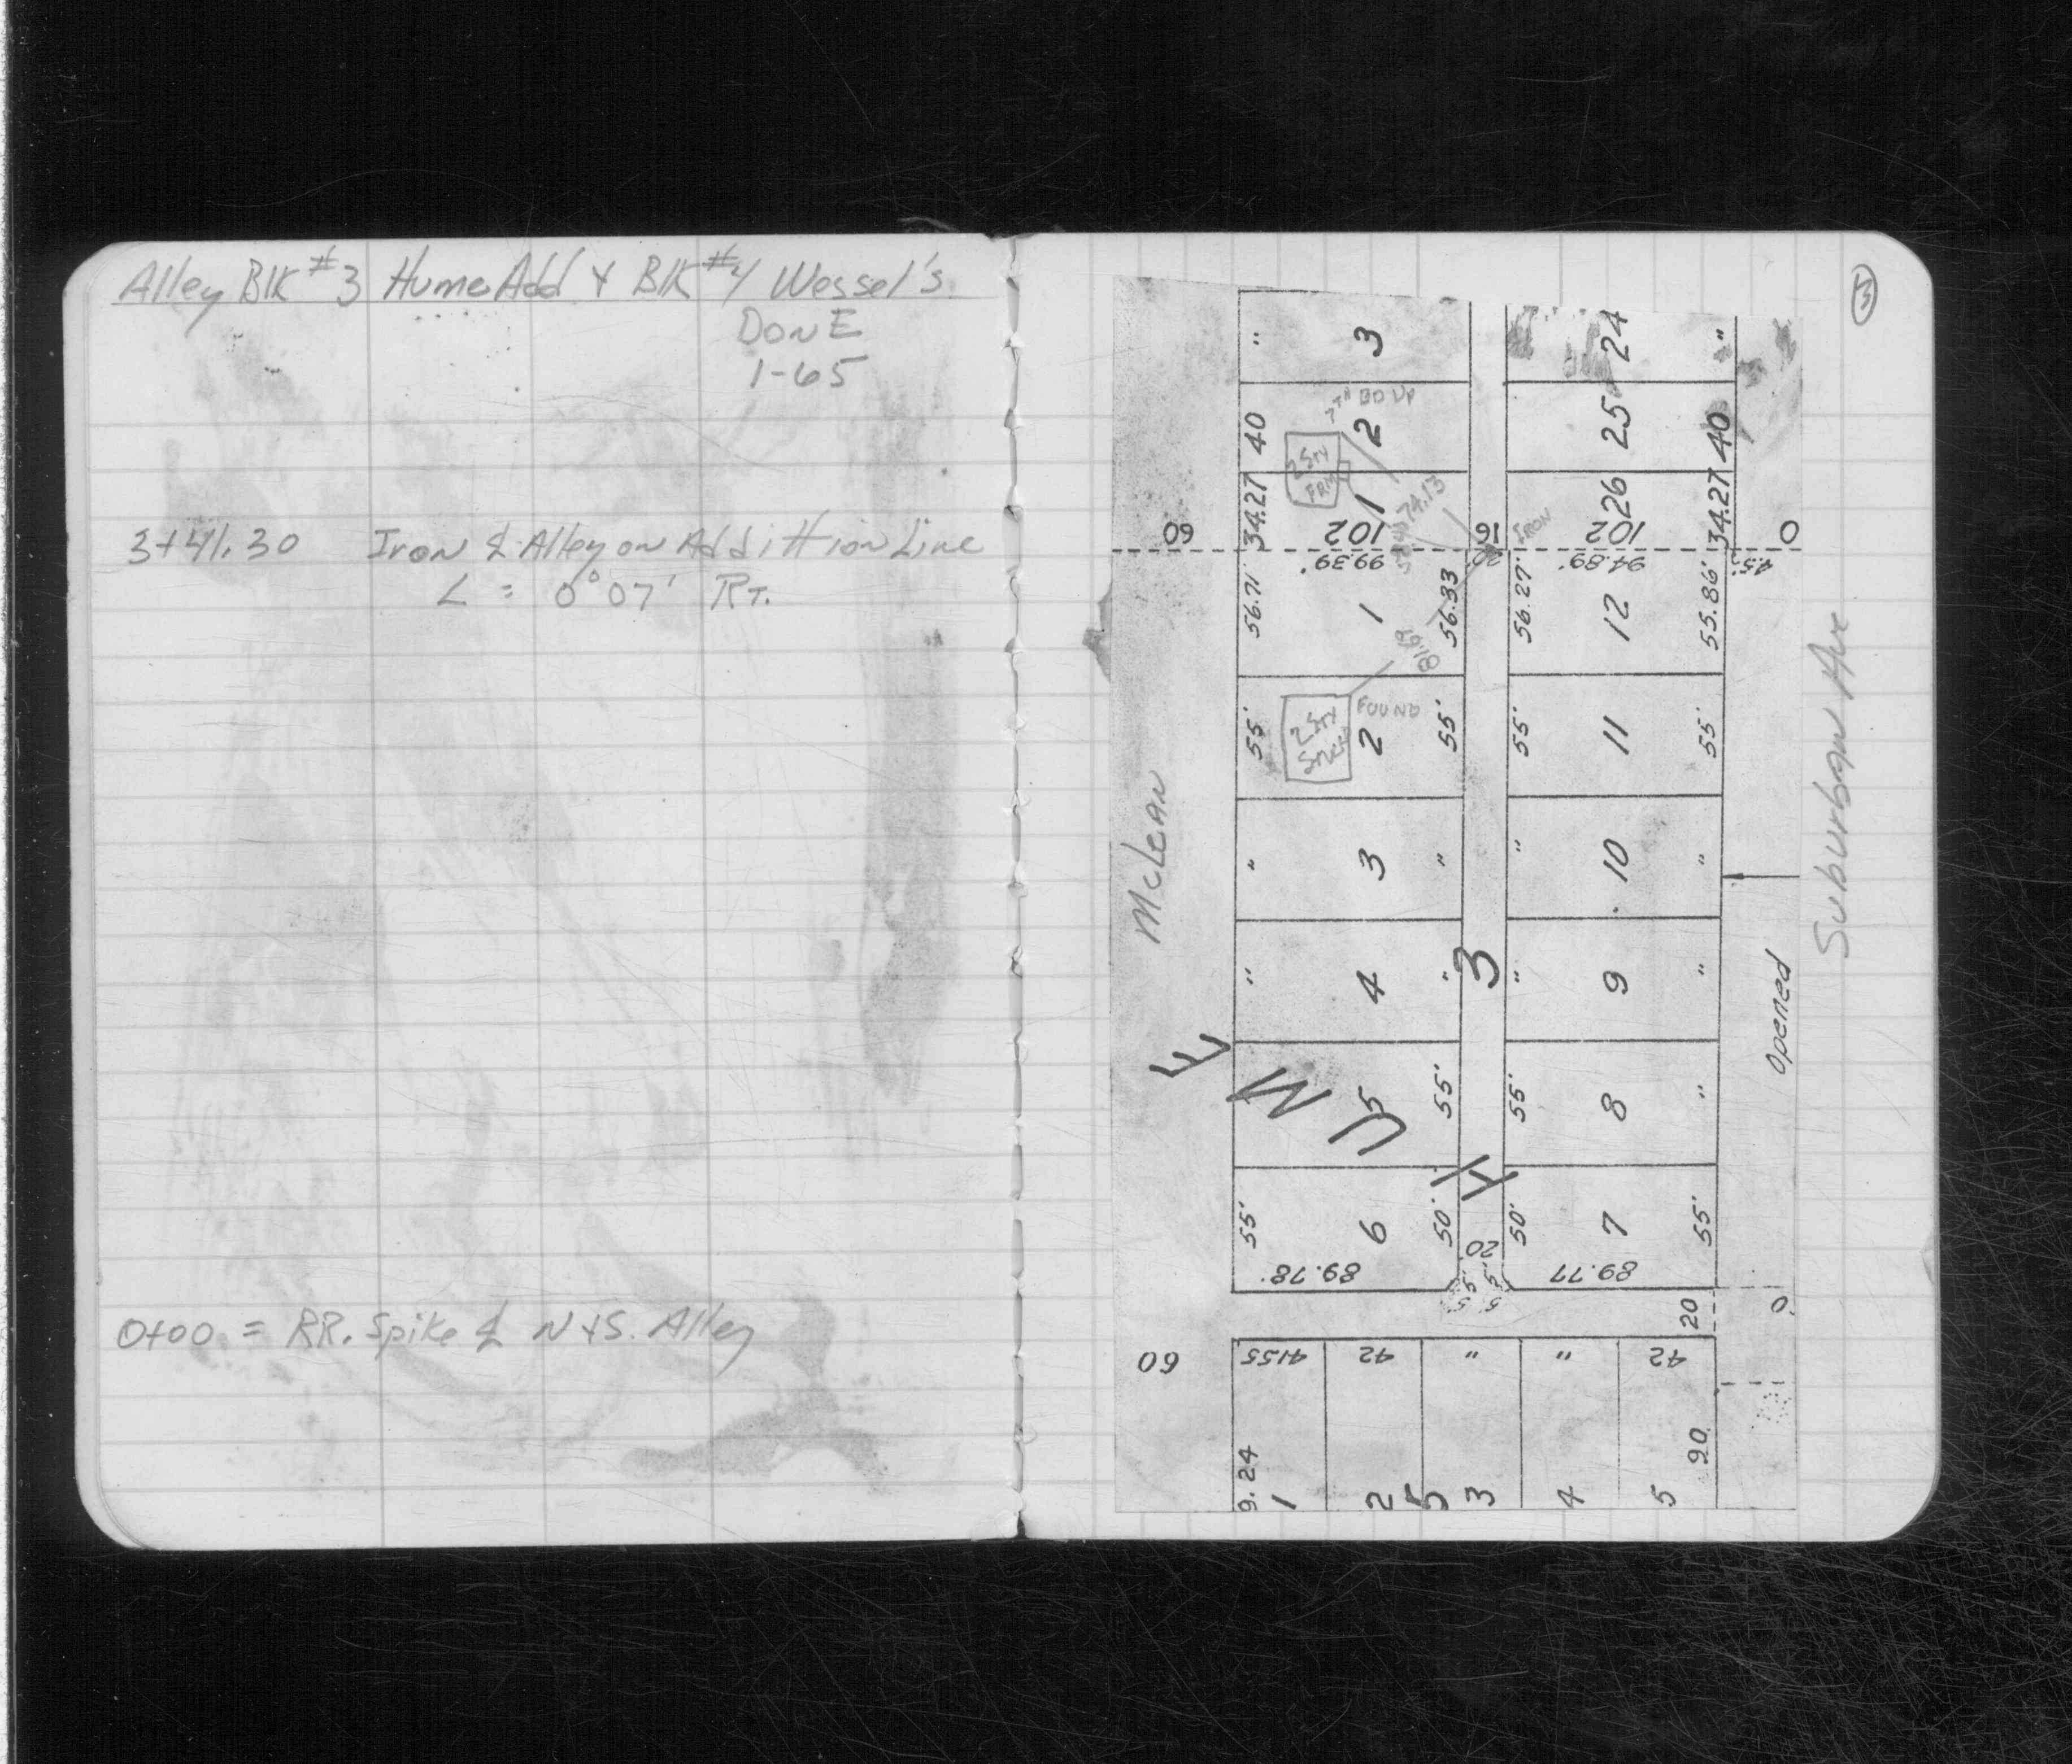 Alley Blk #3 Hume Add & Blk #4 Wessel's
DONE
1-65
3+41.30 Iron ℄ Alley on Addittion Line
∠ = 0°07' RT.
0+00 = RR. Spike ℄ N & S. Alley
3
" 3 24 "
7TH BD UP
40 2 25 40
2 STY
FRM
34.27 1 74.13 26 34.27
60 102 16 IRON 102 0
99.39' 20' 94.89' 4.5'
56.71' 1 56.33 56.27' 12 55.86'
81.69
FOUND
55' 2 55' 55' 11 55'
2 STY
McLean
Suburban Ave
" 3 " " 10 "
" 4 " 3 " 9 "
Opened
HUME
5 55' 55' 8 "
55' 6 50' 50' 7 55'
20
89.78' 89.77
5' 5'
5' 5'
20 0
60 41.55 42 " " 42
9.24 90
1 2 5 3 4 5